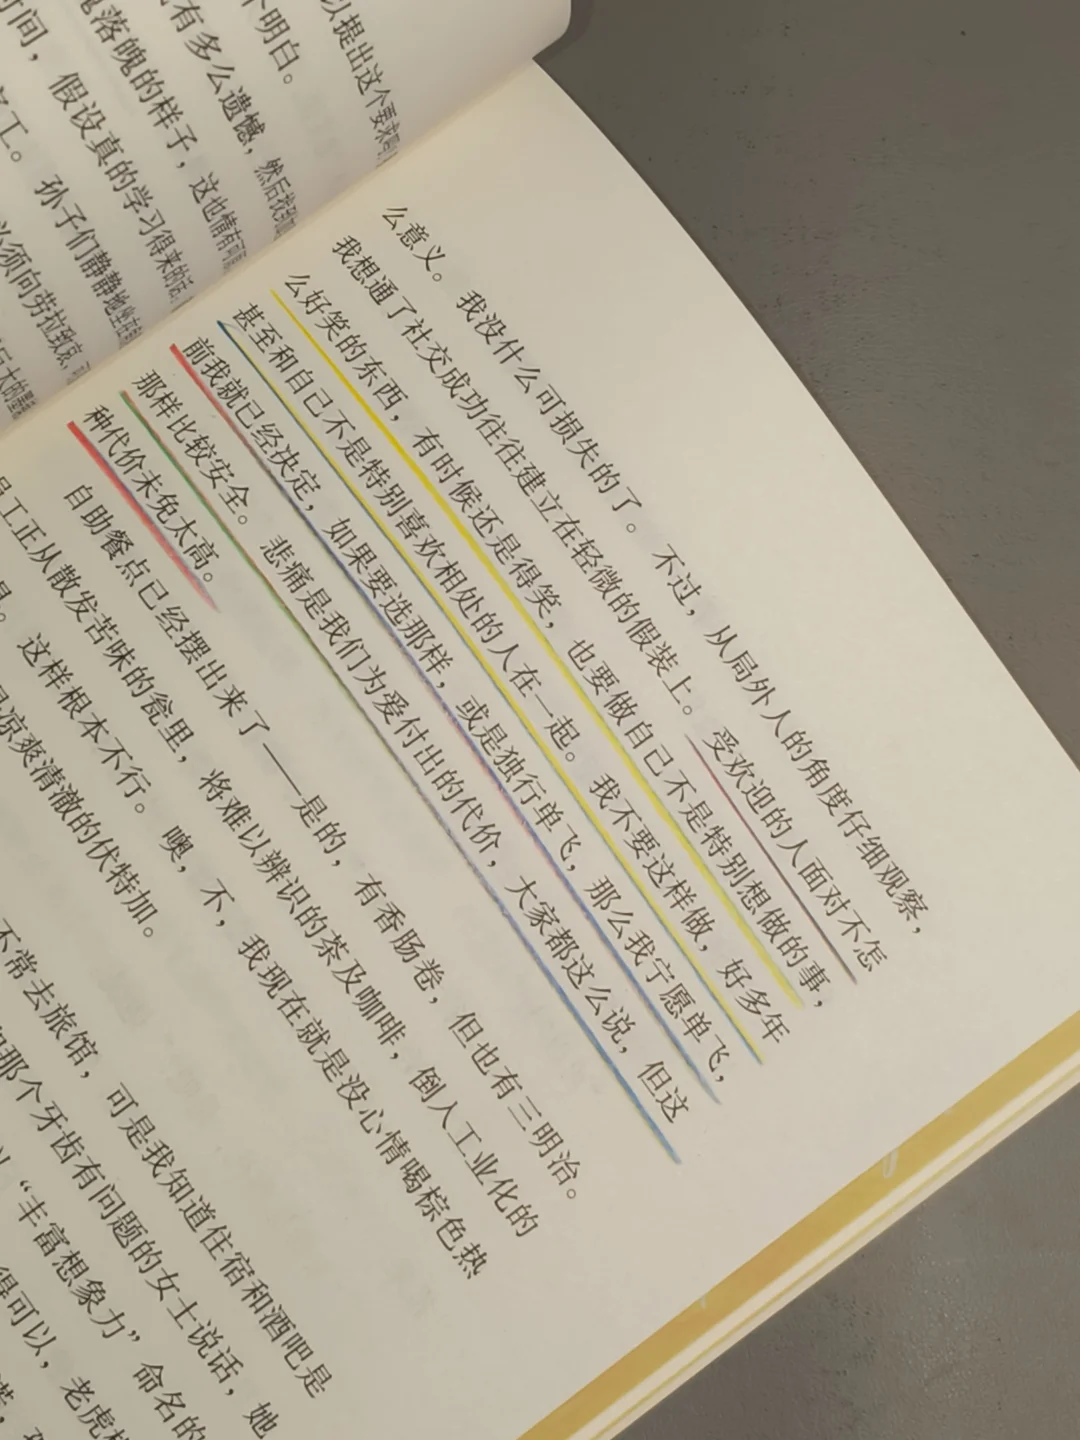 以提出这个要求
不明白。
有多么遗憾，然后找到
落魄的样子，这也情有可
时间，假设真的学习得来的话，
工。孙子们静静地坐在
必须向劳拉致哀，
么意义。我没什么可损失的了。不过，从局外人的角度仔细观察，
我想通了社交成功往往建立在轻微的假装上。受欢迎的人面对不怎
么好笑的东西，有时候还是得笑，也要做自己不是特别想做的事，
甚至和自己不是特别喜欢相处的人在一起。我不要这样做，好多年
前我就已经决定，如果要选那样，或是独行单飞，那么我宁愿单飞，
那样比较安全。悲痛是我们为爱付出的代价，大家都这么说，但这
种代价未免太高。
自助餐点已经摆出来了——是的，有香肠卷，但也有三明治。
员工正从散发苦味的瓮里，将难以辨识的茶及咖啡，倒人工业化的
。这样根本不行。噢，不，我现在就是没心情喝棕色热
凉爽清澈的伏特加。
不常去旅馆，可是我知道住宿和酒吧是
那个牙齿有问题的女士说话，她
“丰富想象力”命名的
得可以，老虎